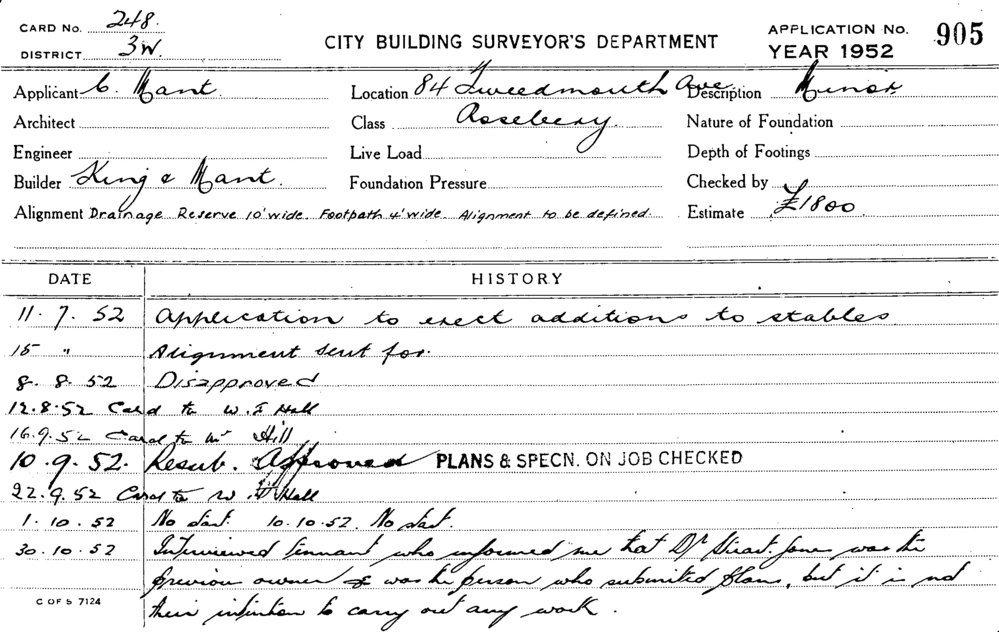 CARD No. 248.
DISTRICT 3W.
CITY BUILDING SURVEYOR'S DEPARTMENT
APPLICATION No. 905
YEAR 1952
Applicant C. Mant. Location 84 Tweedmouth Ave Description Minor
Architect Class Rosebery. Nature of Foundation
Engineer Live Load Depth of Footings
Builder King & Mant. Foundation Pressure Checked by
Alignment Drainage Reserve 10' wide. Footpath 4' wide. Alignment to be defined. Estimate £1800
DATE HISTORY
11. 7. 52 Application to erect additions to stables
15 " Alignment sent for.
8. 8. 52 Disapproved
12.8.52 Card to W. Hall
16.9.52 Card to Mr Hill
10.9.52. Resub. Approved PLANS & SPECN. ON JOB CHECKED
22.9.52 Card to W. Hall
1.10.52 No start. 10.10.52. No start.
30.10.52 Interviewed tennant who informed me that Dr Stuart Jones was the
previous owner & was the person who submitted plans, but it is not
their intention to carry out any work.
C OF S 7124